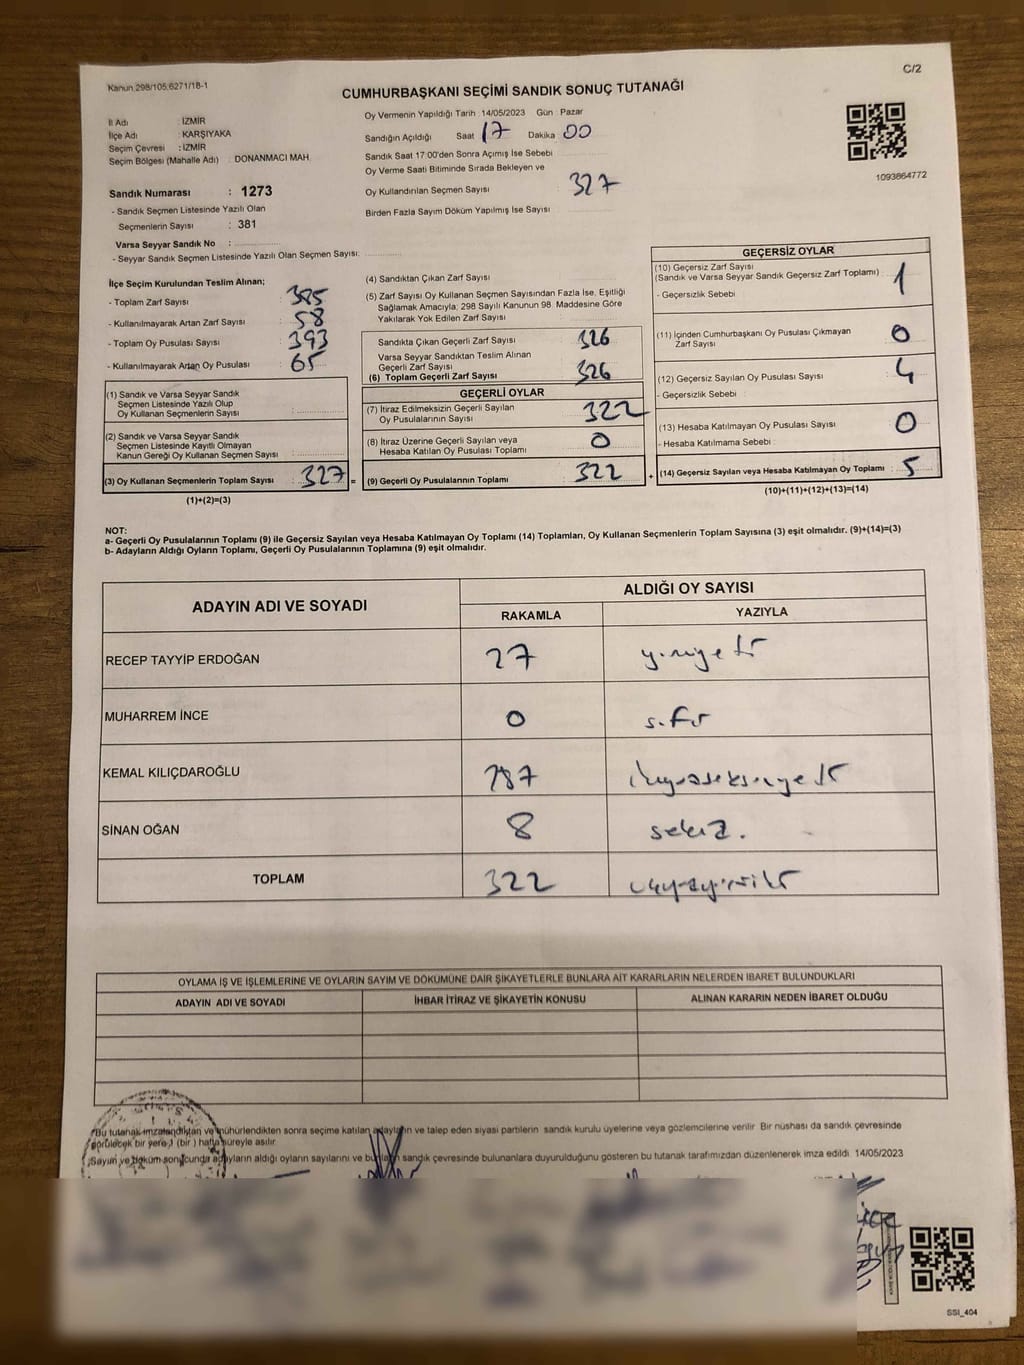 Kanun 298/105;6271/18-1
C/2
CUMHURBAŞKANI SEÇİMİ SANDIK SONUÇ TUTANAĞI
İl Adı : İZMİR
İlçe Adı : KARŞIYAKA
Seçim Çevresi : İZMİR
Seçim Bölgesi (Mahalle Adı) : DONANMACI MAH.
Sandık Numarası : 1273
- Sandık Seçmen Listesinde Yazılı Olan
Seçmenlerin Sayısı : 381
Varsa Seyyar Sandık No :
- Seyyar Sandık Seçmen Listesinde Yazılı Olan Seçmen Sayısı:
Oy Vermenin Yapıldığı Tarih : 14/05/2023 Gün : Pazar
Sandığın Açıldığı Saat 17 Dakika 00
Sandık Saat 17:00'den Sonra Açımış İse Sebebi
Oy Verme Saati Bitiminde Sırada Bekleyen ve
Oy Kullandırılan Seçmen Sayısı 327
Birden Fazla Sayım Döküm Yapılmış İse Sayısı
1093864772
İlçe Seçim Kurulundan Teslim Alınan;
- Toplam Zarf Sayısı : 385
- Kullanılmayarak Artan Zarf Sayısı : 58
- Toplam Oy Pusulası Sayısı : 393
- Kullanılmayarak Artan Oy Pusulası : 65
(1) Sandık ve Varsa Seyyar Sandık
Seçmen Listesinde Yazılı Olup
Oy Kullanan Seçmenlerin Sayısı :
(2) Sandık ve Varsa Seyyar Sandık
Seçmen Listesinde Kayıtlı Olmayan
Kanun Gereği Oy Kullanan Seçmen Sayısı :
(3) Oy Kullanan Seçmenlerin Toplam Sayısı : 327 =
(1)+(2)=(3)
(4) Sandıktan Çıkan Zarf Sayısı
(5) Zarf Sayısı Oy Kullanan Seçmen Sayısından Fazla İse, Eşitliği
Sağlamak Amacıyla; 298 Sayılı Kanunun 98. Maddesine Göre
Yakılarak Yok Edilen Zarf Sayısı
Sandıkta Çıkan Geçerli Zarf Sayısı 326
Varsa Seyyar Sandıktan Teslim Alınan
Geçerli Zarf Sayısı
(6) Toplam Geçerli Zarf Sayısı 326
GEÇERLİ OYLAR
(7) İtiraz Edilmeksizin Geçerli Sayılan
Oy Pusulalarının Sayısı 322
(8) İtiraz Üzerine Geçerli Sayılan veya
Hesaba Katılan Oy Pusulası Toplamı 0
(9) Geçerli Oy Pusulalarının Toplamı 322 +
GEÇERSİZ OYLAR
(10) Geçersiz Zarf Sayısı
(Sandık ve Varsa Seyyar Sandık Geçersiz Zarf Toplamı) 1
- Geçersizlik Sebebi
(11) İçinden Cumhurbaşkanı Oy Pusulası Çıkmayan
Zarf Sayısı 0
(12) Geçersiz Sayılan Oy Pusulası Sayısı 4
- Geçersizlik Sebebi
(13) Hesaba Katılmayan Oy Pusulası Sayısı 0
- Hesaba Katılmama Sebebi :
(14) Geçersiz Sayılan veya Hesaba Katılmayan Oy Toplamı 5
(10)+(11)+(12)+(13)=(14)
NOT:
a- Geçerli Oy Pusulalarının Toplamı (9) ile Geçersiz Sayılan veya Hesaba Katılmayan Oy Toplamı (14) Toplamları, Oy Kullanan Seçmenlerin Toplam Sayısına (3) eşit olmalıdır. (9)+(14)=(3)
b- Adayların Aldığı Oyların Toplamı, Geçerli Oy Pusulalarının Toplamına (9) eşit olmalıdır.
ADAYIN ADI VE SOYADI
ALDIĞI OY SAYISI
RAKAMLA YAZIYLA
RECEP TAYYİP ERDOĞAN 27 yirmiyedi
MUHARREM İNCE 0 sıfır
KEMAL KILIÇDAROĞLU 287 ikiyüzseksenyedi
SİNAN OĞAN 8 sekiz.
TOPLAM 322 üçyüzyirmiiki
OYLAMA İŞ VE İŞLEMLERİNE VE OYLARIN SAYIM VE DÖKÜMÜNE DAİR ŞİKAYETLERLE BUNLARA AİT KARARLARIN NELERDEN İBARET BULUNDUKLARI
ADAYIN ADI VE SOYADI İHBAR İTİRAZ VE ŞİKAYETİN KONUSU ALINAN KARARIN NEDEN İBARET OLDUĞU
*Bu tutanak imzalandıktan ve mühürlendikten sonra seçime katılan adayların ve talep eden siyasi partilerin sandık kurulu üyelerine veya gözlemcilerine verilir. Bir nüshası da sandık çevresinde
görülecek bir yere 1 (bir ) hafta süreyle asılır.
Sayım ve döküm sonucunda adayların aldığı oyların sayılarını ve bunların sandık çevresinde bulunanlara duyurulduğunu gösteren bu tutanak tarafımızdan düzenlenerek imza edildi. 14/05/2023
SSI_404